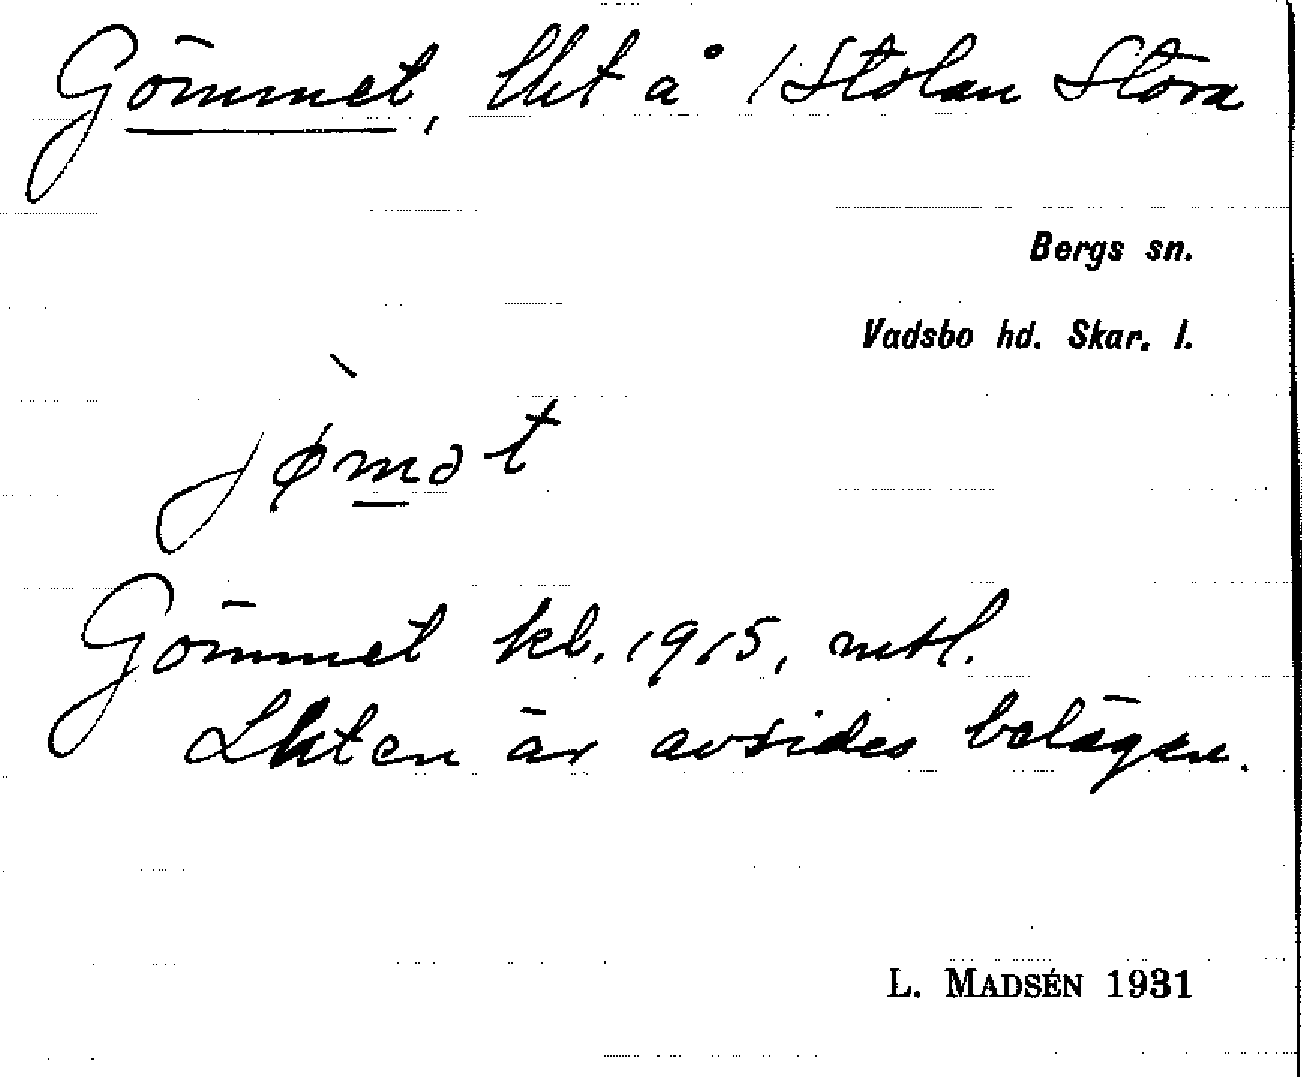 Gömmet, lht å 1 Stolan Stora
Bergs sn.
Vadsbo hd. Skar. l.
jø̀mət
Gömmet kb. 1915, mtl.
Lhten är avsides belägen.
L. MADSÉN 1931